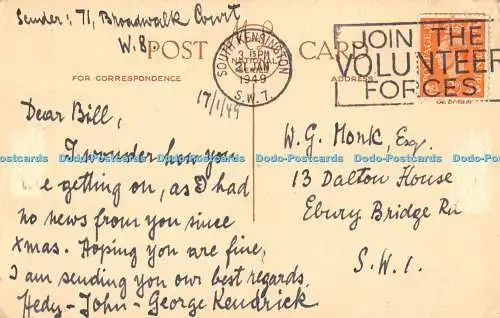 Sender: 71, Broadwalk Court
W.8.
POST CARD
FOR CORRESPONDENCE
ADDRESS
SOUTH KENSINGTON
3.15 PM
1949
S.W.7.
JOIN THE
VOLUNTEER
FORCES
17/1/49
Dear Bill,
I wonder how you
e getting on, as I had
no news from you since
Xmas. Hoping you are fine,
I am sending you our best regards.
Hedy - John - George Kendrick
W. G. Monk, Esq.
13 Dalton House
Ebury Bridge Rd
S.W.1.
Dodo-Postcards Dodo-Postcards Dodo-Postcards Dodo-Postcards Dodo-Postcards